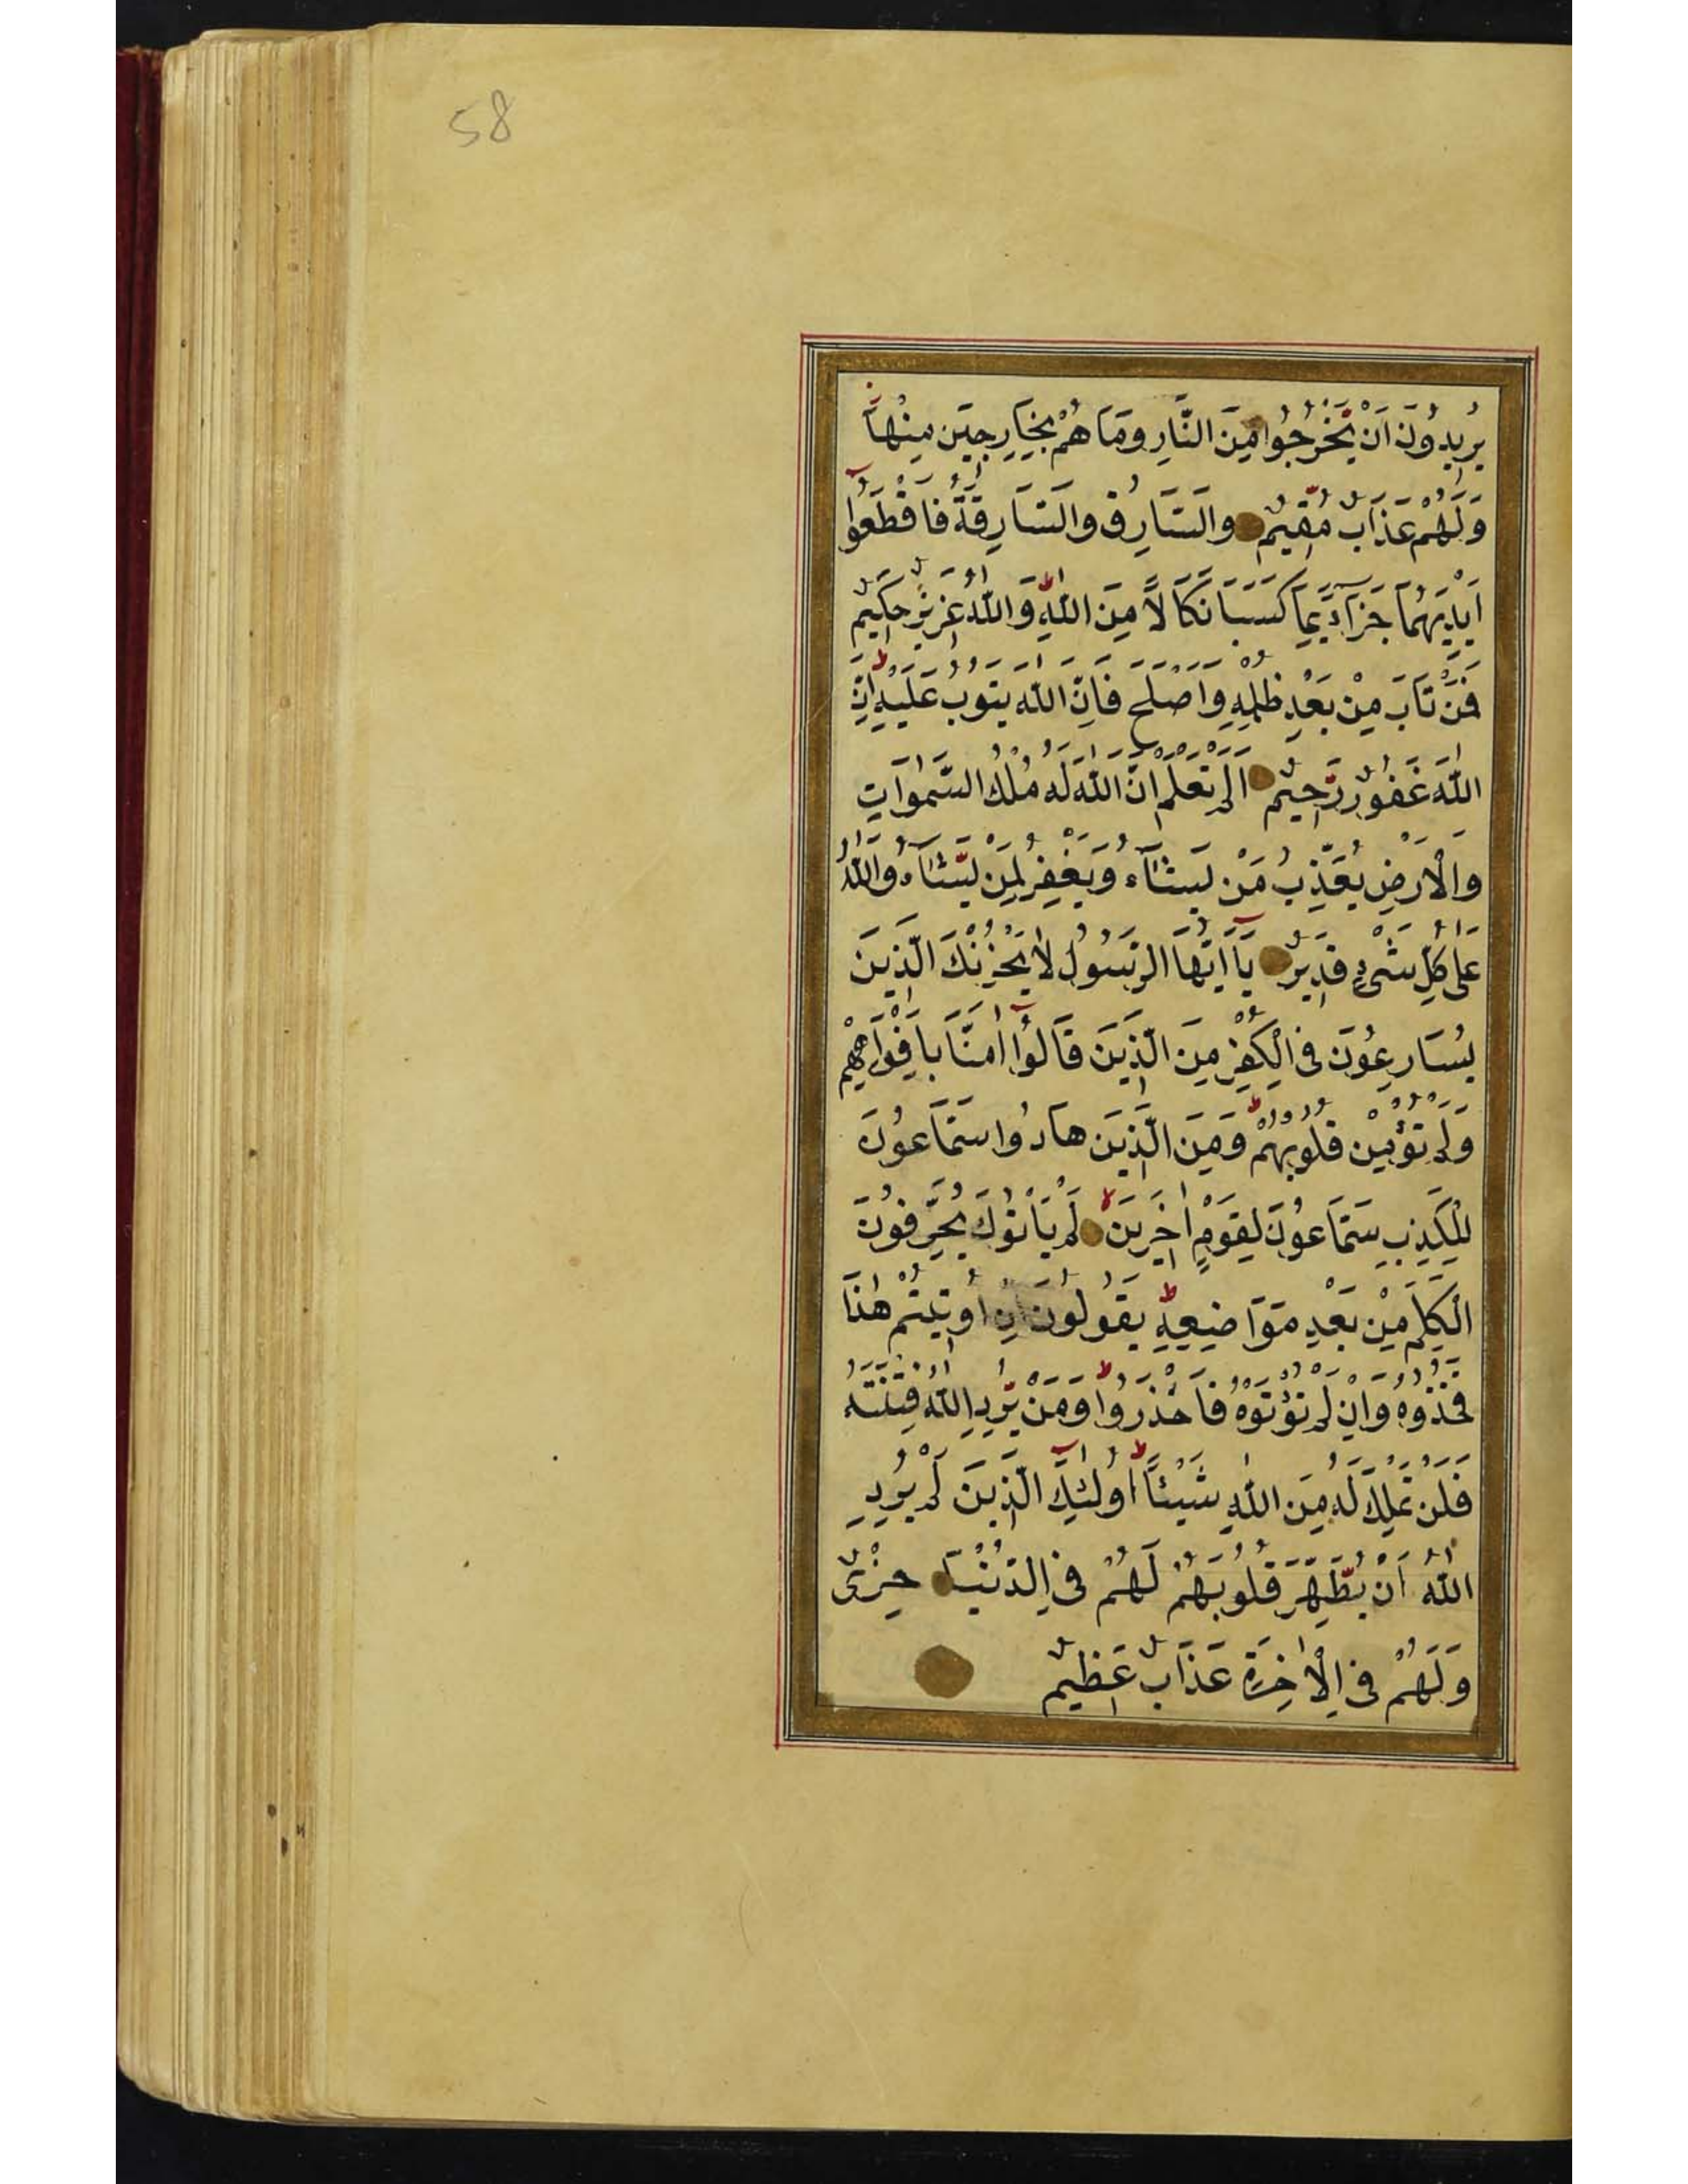 58
يُرِيدُونَ اَنْ يَّخْرُجُوا مِنَ النَّارِ وَمَا هُمْ بِخَارِجِيَن مِنْهَا
وَلَهُمْ عَذَابٌ مُّقِيمٌ وَالسَّارِقُ وَالسَّارِقَةُ فَاقْطَعُوا
اَيْدِيَهُمَا جَزَآءً بِمَا كَسَبَا نَكَالًا مِنَ اللّٰهِ وَاللّٰهُ عَزِيزٌ حَكِيمٌ
فَمَنْ تَابَ مِنْ بَعْدِ ظُلْمِهِ وَاَصْلَحَ فَاِنَّ اللّٰهَ يَتُوبُ عَلَيْهِ اِنَّ
اللّٰهَ غَفُورٌ رَّحِيمٌ اَلَمْ تَعْلَمْ اَنَّ اللّٰهَ لَهُ مُلْكُ السَّمٰوَاتِ
وَالْاَرْضِ يُعَذِّبُ مَنْ يَشَآءُ وَيَغْفِرُ لِمَنْ يَّشَآءُ وَاللّٰهُ
عَلٰى كُلِّ شَىْءٍ قَدِيرٌ يَآاَيُّهَا الرَّسُولُ لَا يَحْزُنْكَ الَّذِينَ
يُسَارِعُونَ فِى الْكُفْرِ مِنَ الَّذِينَ قَالُوا اٰمَنَّا بِاَفْوَاهِهِمْ
وَلَمْ تُؤْمِنْ قُلُوبُهُمْ وَمِنَ الَّذِينَ هَادُوا سَمَّاعُونَ
لِلْكَذِبِ سَمَّاعُونَ لِقَوْمٍ اٰخَرِينَ لَمْ يَاْتُوكَ يُحَرِّفُونَ
الْكَلِمَ مِنْ بَعْدِ مَوَاضِعِهِ يَقُولُونَ اِنْ اُوتِيتُمْ هٰذَا
فَخُذُوهُ وَاِنْ لَمْ تُؤْتَوْهُ فَاحْذَرُوا وَمَنْ يُّرِدِ اللّٰهُ فِتْنَتَهُ
فَلَنْ تَمْلِكَ لَهُ مِنَ اللّٰهِ شَيْئًا اُولٰئِكَ الَّذِينَ لَمْ يُرِدِ
اللّٰهُ اَنْ يُّطَهِّرَ قُلُوبَهُمْ لَهُمْ فِى الدُّنْيَا خِزْىٌ
وَلَهُمْ فِى الْاٰخِرَةِ عَذَابٌ عَظِيمٌ